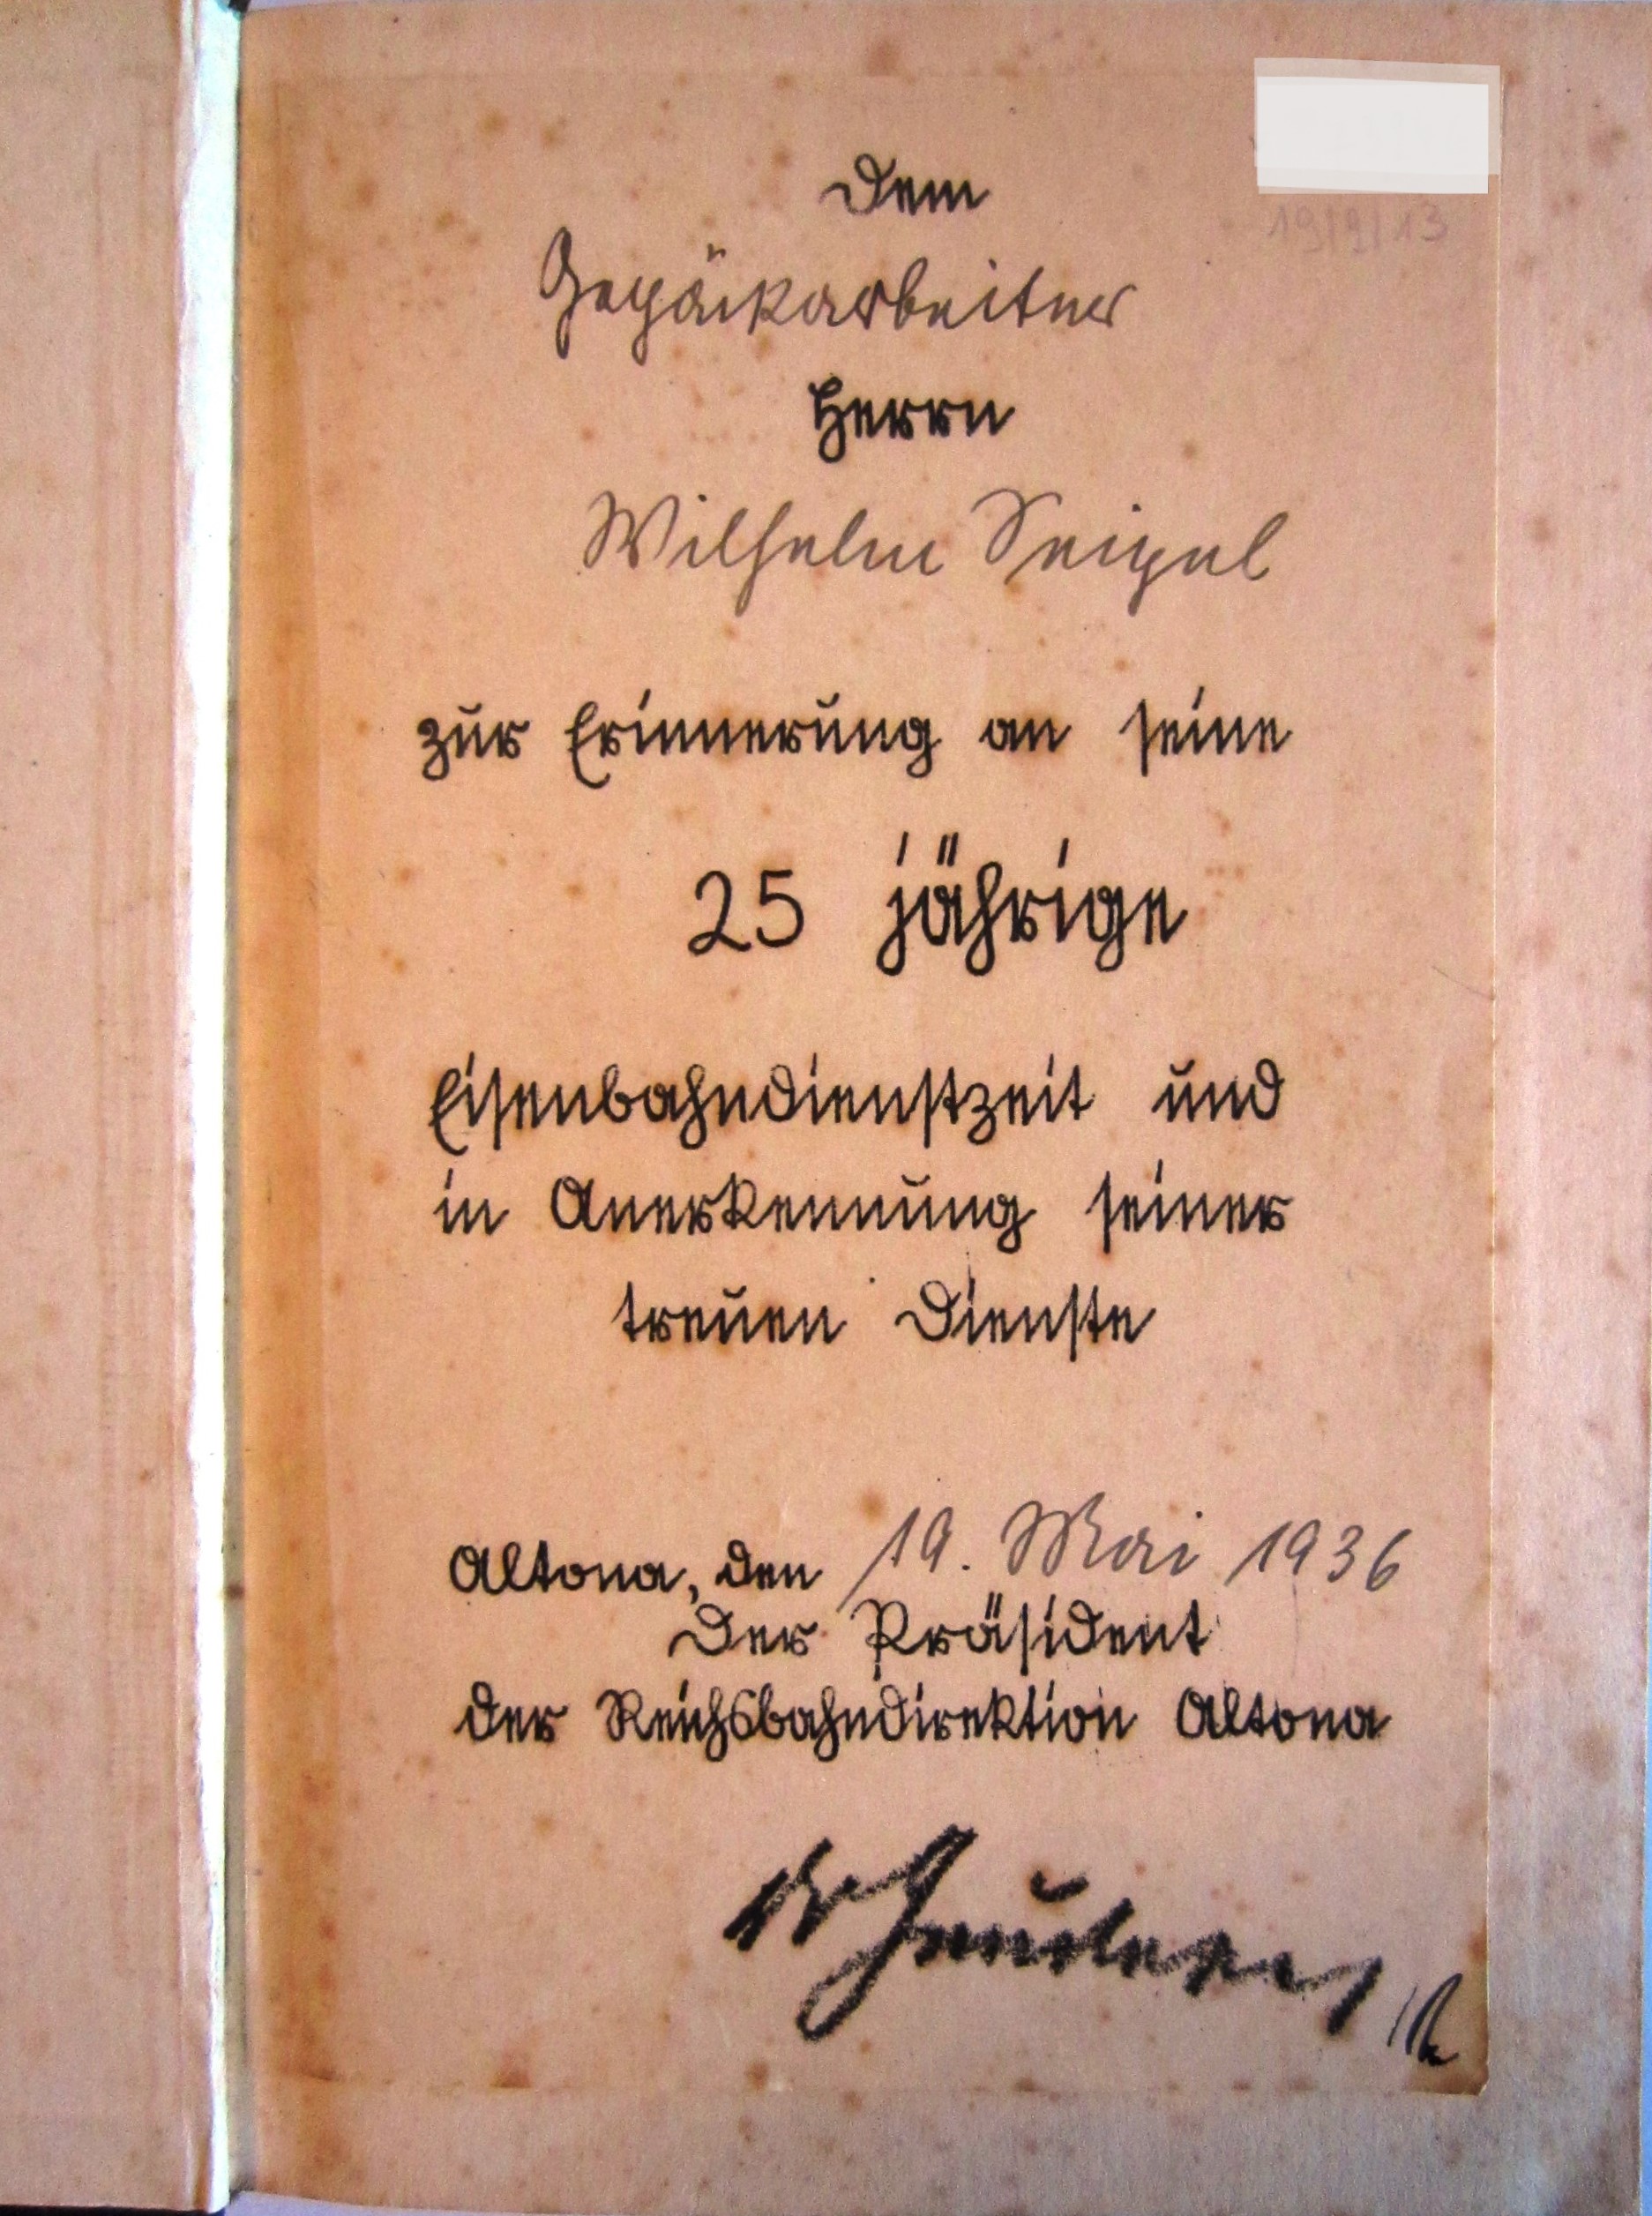 19/9/13
Dem
Gepäckarbeiter
Herrn
Wilhelm Seipel
zur Erinnerung an seine
25 jährige
Eisenbahndienstzeit und
in Anerkennung seiner
treuen Dienste
Altona, den 19. Mai 1936
Der Präsident
der Reichsbahndirektion Altona